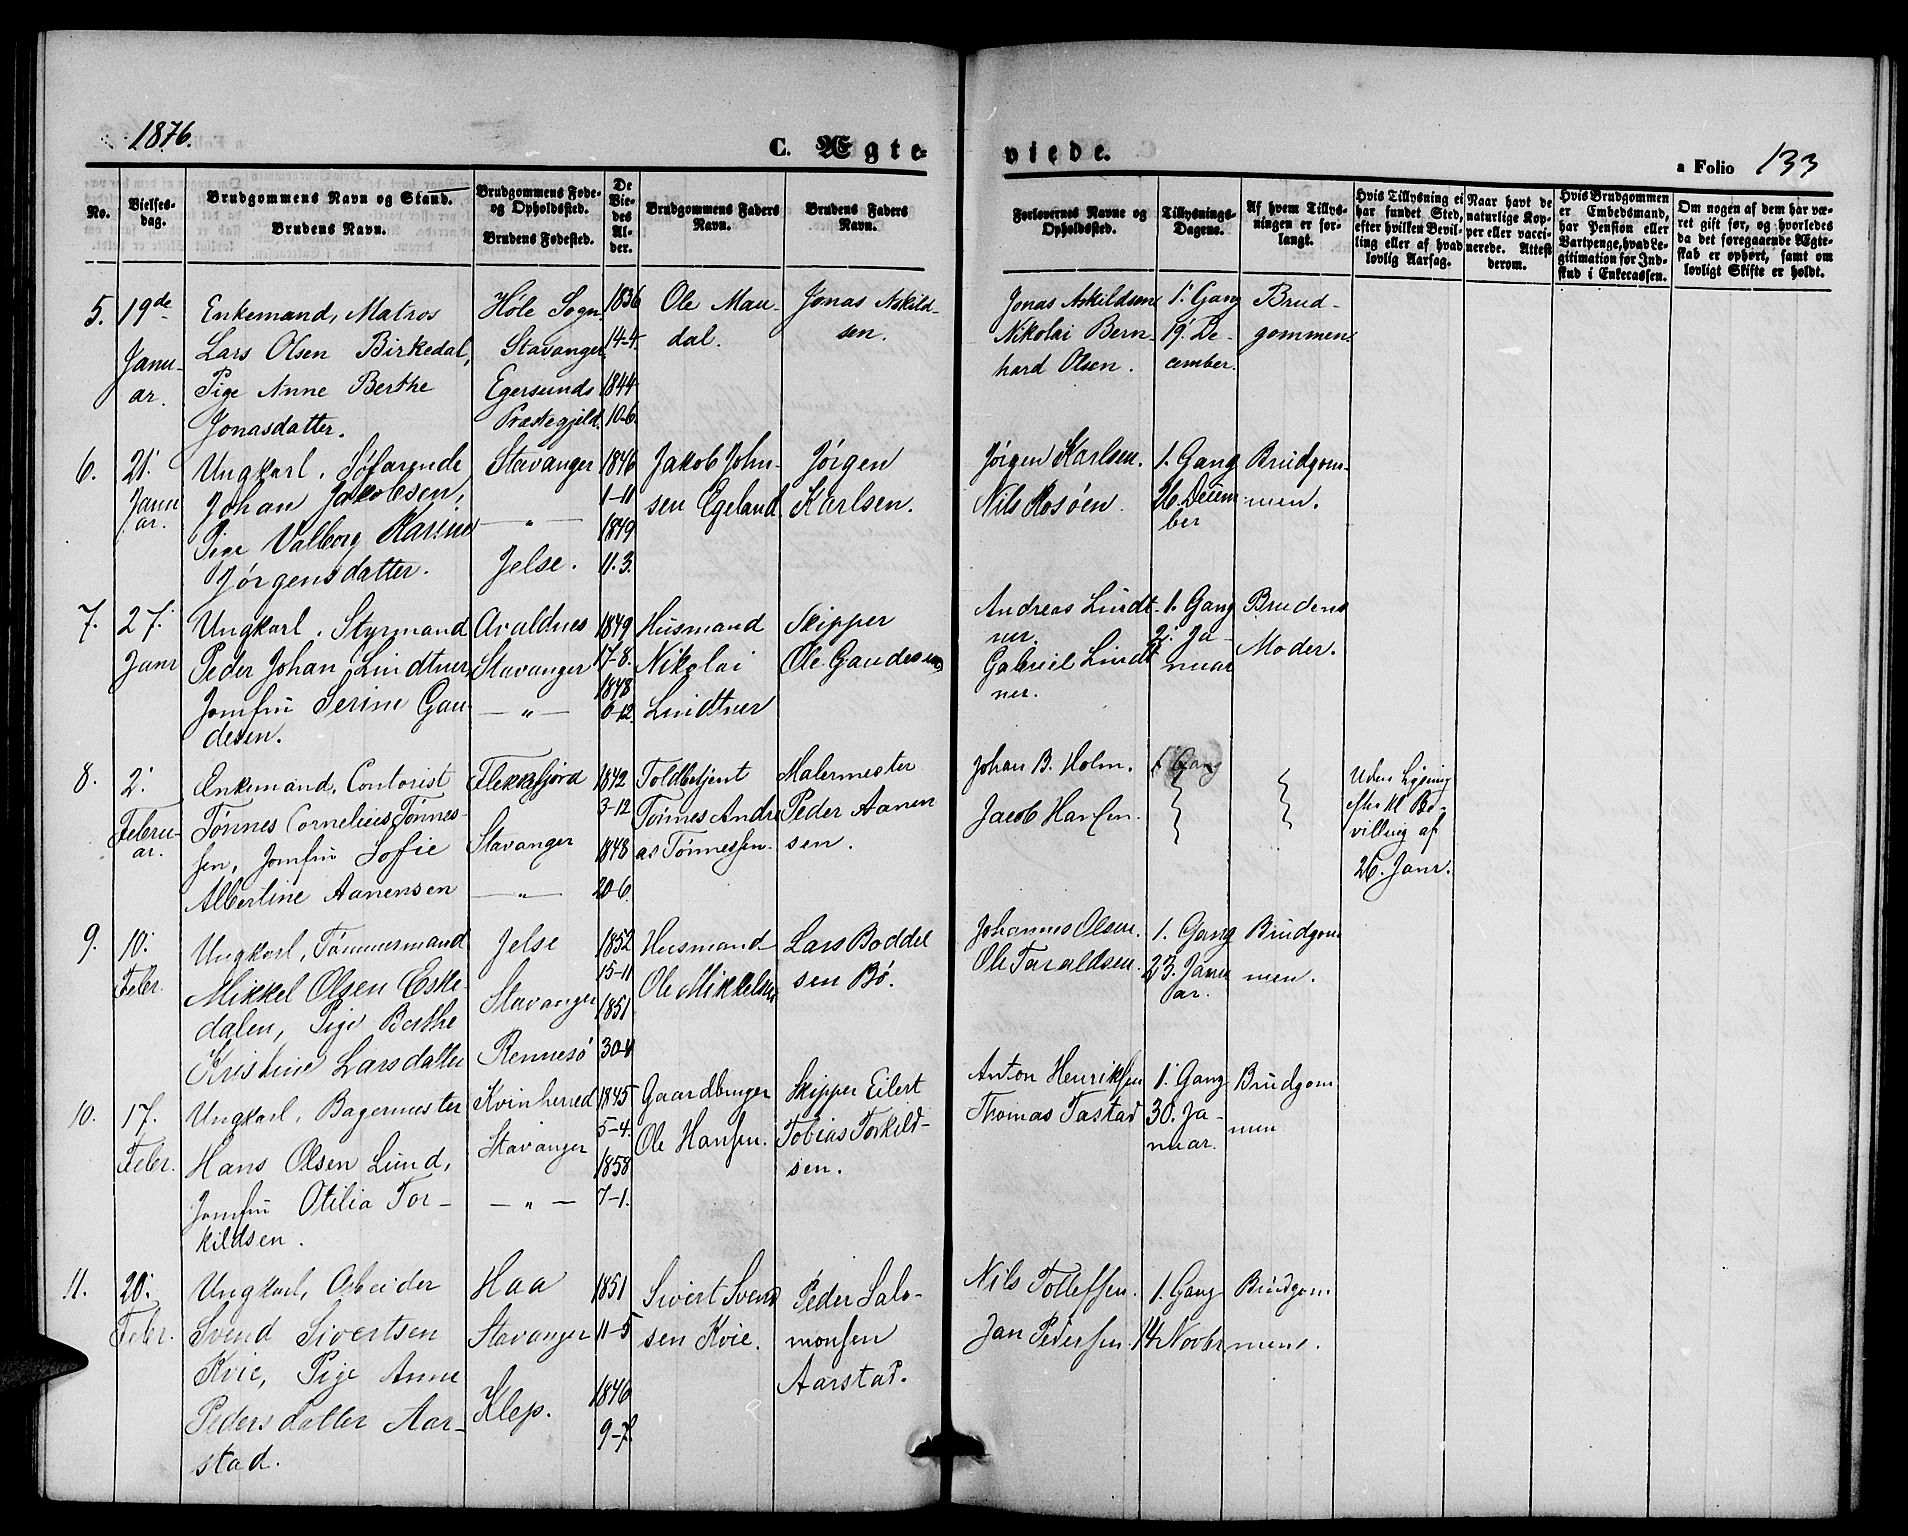 1876.
C. Ægte-
viede.
a Folio 133
No.
Vielses-
dag.
Brudgommens Navn og Stand.
Brudens Navn.
Brudgommens Føde-
og Opholdssted.
Brudens Fødested.
De
Vie-
des
Al-
der.
Brudgommens Faders
Navn.
Brudens Faders
Navn.
Forlovernes Navne og
Opholdssted.
Tillysnings-
Dagene.
Af hvem Tillys-
ningen er for-
langt.
Hvis Tillysning ei
har fundet Sted,
efter hvilken Bevil-
ling eller af hvad
lovlig Aarsag.
Naar havt de
naturlige Kop-
per eller vacci-
nerede. Attest
derom.
Hvis Brudgommen
er Embedsmand,
har Pension eller
Vartpenge, hvad Le-
gitimation for Ind-
skud i Enkecassen.
Om nogen af dem har væ-
ret gift før, og hvorledes
da det foregaaende Ægte-
skab er ophørt, samt om
lovligt Skifte er holdt.
5.
19de
Janu-
ar.
Enkemand, Matros
Lars Olsen Birkedal,
Pige Anne Berthe
Jonasdatter.
Høle Sogn.
Stavanger.
Egersunds
Præstegjeld.
1836
14-4.
1844
10-6.
Ole Mau-
dal.
Jonas Askild-
sen.
Jonas Askildsen
Nikolai Bern-
hard Olsen.
1. Gang
19. De-
cember.
Brud-
gommen.
6.
21.
Janu
ar.
Ungkarl. Søfarende
Johan Jakobsen,
Pige Valborg Karine
Jørgensdatter.
Stavanger
— „ —
Jelse.
1846
1-11
1849
11.3.
Jakob John-
sen Egeland.
Jørgen
Karlsen.
Jørgen Karlsen.
Nils Rosøen.
1. Gang
26. Decem
ber
Brudgom-
men.
7.
27.
Janr
Ungkarl. Styrmand
Peder Johan Lindtner,
Jomfru Serine Gau-
desen.
Avaldnes
Stavanger
— „ —
1849
17-8.
1848
6-12.
Husmand
Nikolai
Lindtner
Skipper
Ole Gaudesen
Andreas Lindt-
ner.
Gabriel Lindt
ner.
1. Gang
2. Ja-
nuar
Brudens
Moder.
8.
2.
Febru-
ar.
Enkemand, Contorist
Tønnes Cornelius Tønnes-
sen, Jomfru Sofie
Albertine Aanensen
Flekkefjord
Stavanger
— „ —
1842
3-12
1848
20-6.
Toldbetjent
Tønnes Andre
as Tønnessen.
Malermester
Peder Aanen
sen.
Johan B. Holm.
Jacob Hansen.
1. Gang
Uden Lysning
efter kl. Be-
villing af
26. Janr.
9.
10.
Febr.
Ungkarl, Tømmermand
Mikkel Olsen Eske-
dalen, Pige Berthe
Kristine Larsdatter
Jelse
Stavanger
Rennesø
1852
15-11
1851
30-4
Husmand
Ole Mikkelsen
Lars Boddel
sen Bø.
Johannes Olsen.
Ole Taraldsen.
1. Gang
23. Janu
ar.
Brudgom
men.
10.
17.
Febr.
Ungkarl, Bagermester
Hans Olsen Lund,
Jomfru Otilia Tor-
kildsen.
Kvinherred
Stavanger
— „ —
1845
5-4.
1858
7-1.
Gaardbruger
Ole Hansen.
Skipper Eilert
Tobias Torkild-
sen.
Anton Henriksen
Thomas Tastad
1. Gang
30. Ja-
nuar.
Brudgom
men
11.
20.
Febr.
Ungkarl, Arbeider
Svend Sivertsen
Kvie, Pige Anne
Pedersdatter Aar-
stad.
Haa
Stavanger
Klep.
1851
11-5
1846
9-7.
Sivert Svend
sen Kvie.
Peder Salo-
monsen
Aarstad.
Nils Tollefsen.
Jan Pedersen
1. Gang
14 Novbr
Brudgom
mene.